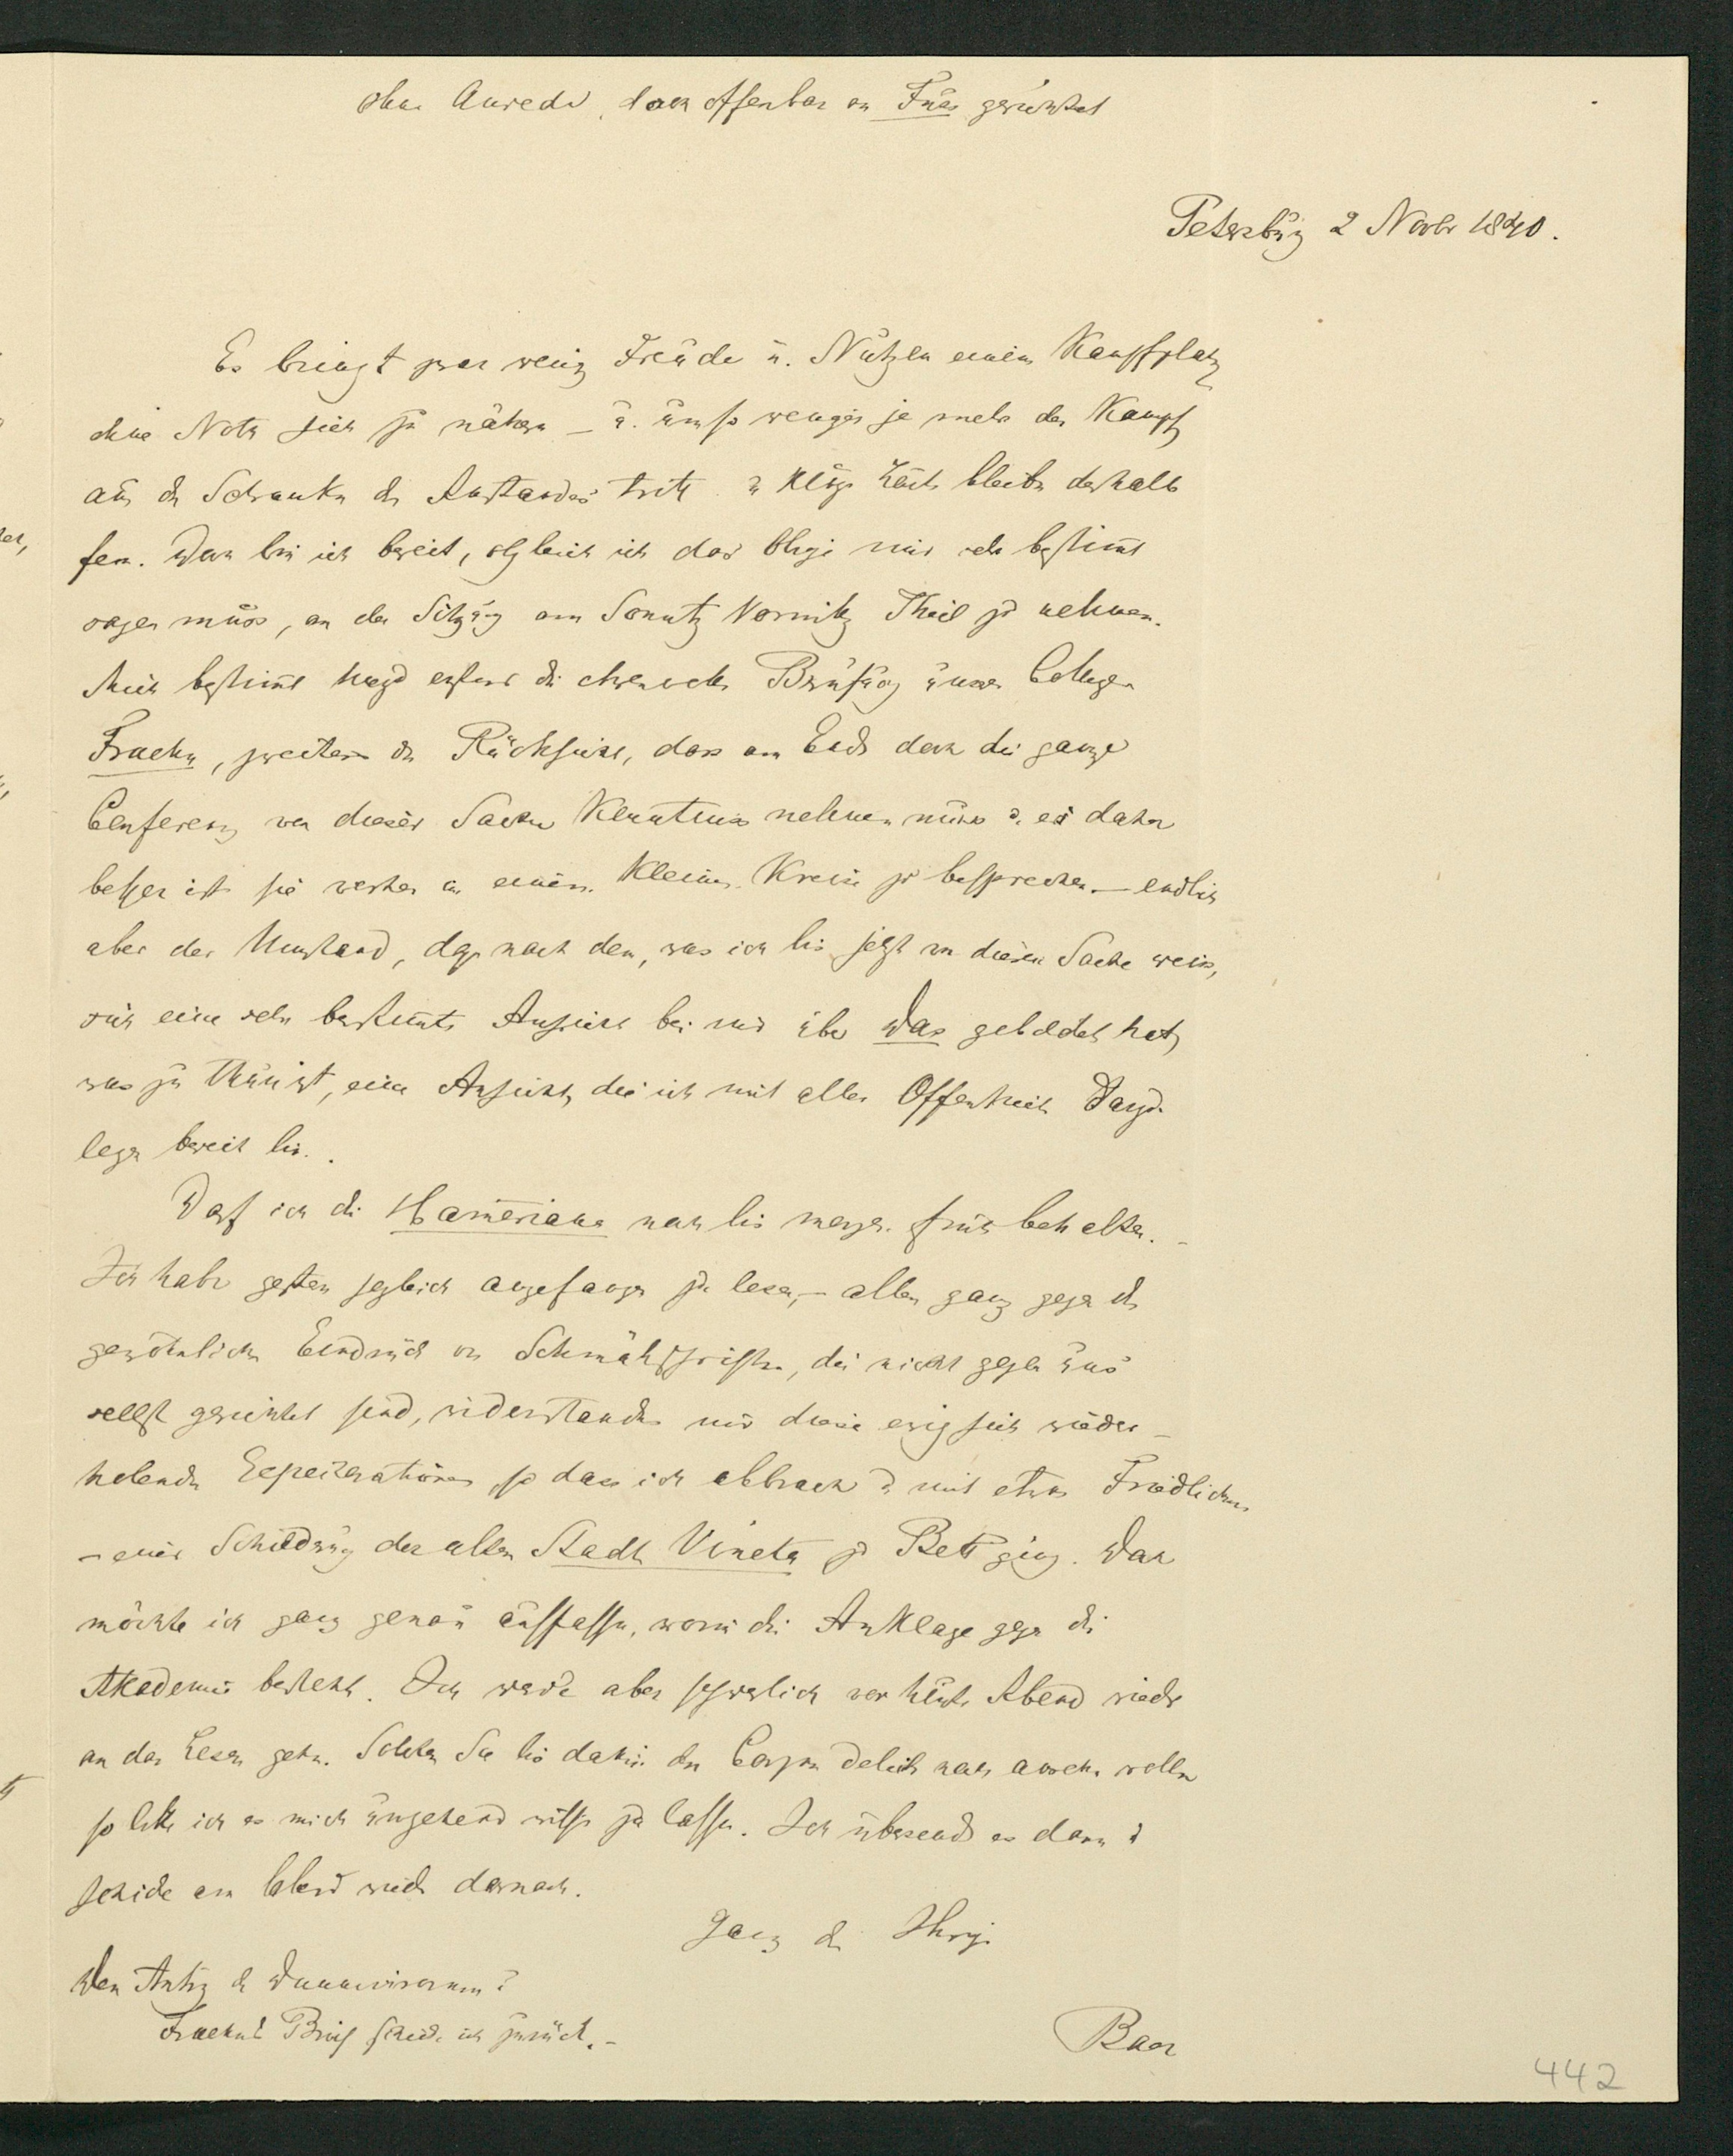 ohne Anrede, doch offenbar an Fuss gerichtet
Petersburg 2 Novbr 1840.
Es bringt zwar wenig Freude u. Nutzen einem Kampfplatz
ohne Noth sich zu nähern – u. umso weniger je mehr der Kampf
aus den Schranken des Anstandes tritt. u kluge Leute bleiben deshalb
fern. Doch bin ich bereit, obgleich ich das Obige mir sehr bestimmt
sagen muss, an der Sitzung am Sonntag Vormittag Theil zu nehmen.
Mich bestimmt hiezu erstens die ehrenvolle Berufung unseres Collegen
Fraehn, zweitens die Rücksicht, dass am Ende doch die ganze
Conferenz von dieser Sache Kenntniss nehmen muss u. es daher
besser ist sie vorher in einem kleinen Kreise zu besprechen. – endlich
aber der Umstand, dass nach dem, was ich bis jetzt von dieser Sache weiss,
sich eine sehr bestimmte Ansicht bei mir über das gebildet hat,
was zu thun ist, eine Ansicht, die ich mit aller Offenheit darzu
legen bereit bin.
Darf ich die Hammeriana noch bis morgen früh behalten. –
Ich habe gestern sogleich angefangen zu lesen, – allein ganz gegen den
gewöhnlichen Eindruck von Schmähschriften, die nicht gegen uns
selbst gerichtet sind, widerstanden mir diese ewig sich wieder –
holenden so dass ich abbrach u mit etwas Friedlichem
– einer Schilderung der alten Stadt Vineta zu Bett ging. Doch
möchte ich ganz genau auffassen, worin die Anklage gegen die
Akademie besteht. Ich werde aber schwerlich vor heute Abend wieder
an das Lesen gehn. Sollten Sie bis dahin das Corpus delicti noch ansehn wollen
so bitte ich es mich umgehend wissen zu lassen. Ich übersende es dann u
schicke am Abend wieder darnach.
Ganz der Ihrige
Den Antrag der Duumvirorum?
Fraehn's Brief schicke ich zurück. –
Baer
442